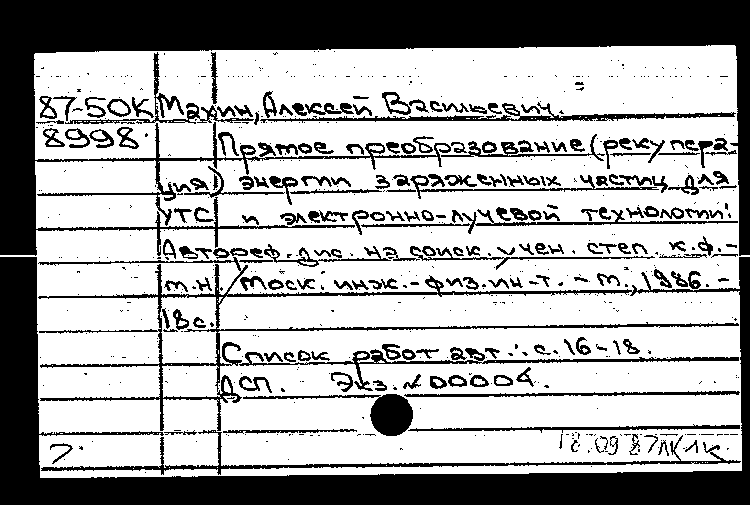 87-50К Махин, Алексей Васильевич.
8998. Прямое преобразование (рекупера-
ция) энергии заряженных частиц для
УТС и электронно-лучевой технологии:
Автореф. дис. на соиск. учен. степ. к.ф.-
м.н. / Моск. инж.-физ. ин-т. - М., 1986. -
18с.
Список работ авт.: с. 16-18.
ДСП. Экз. № 00004.
7. 18.09 87